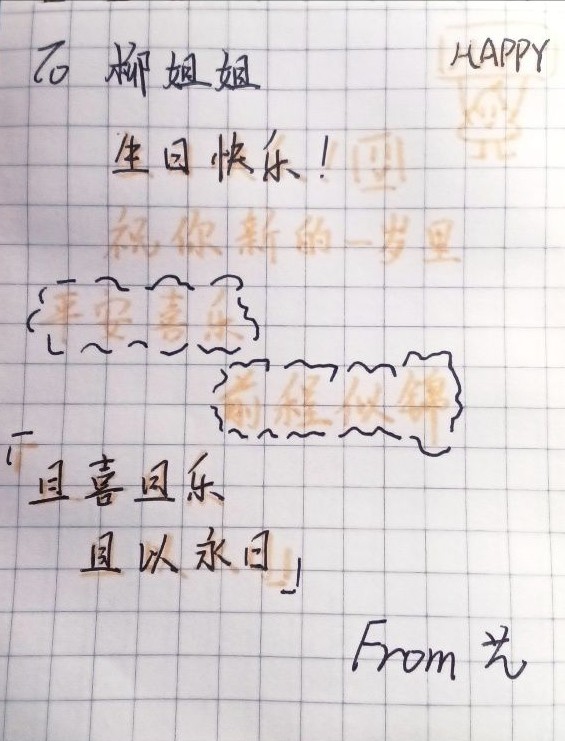 To 柳姐姐
HAPPY
生日快乐！
祝你新的一岁里
平安喜乐
前程似锦
「且喜且乐
且以永日」
From 光